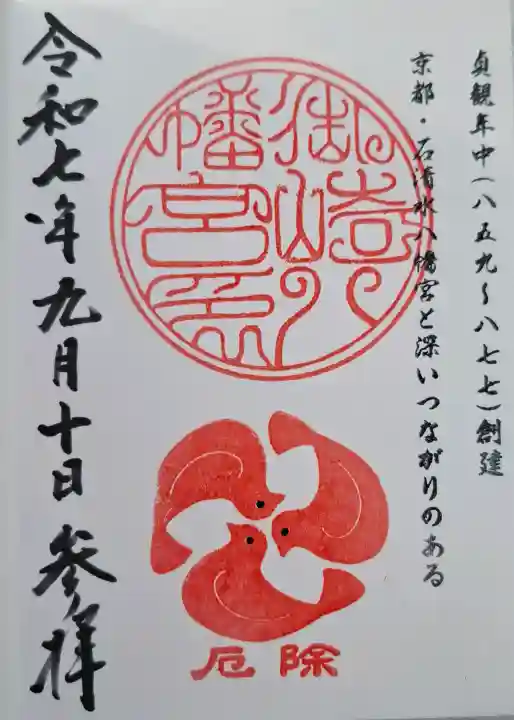 貞観年中(八五九~八七七)創建
京都・石清水八幡宮と深いつながりのある
御崎八幡宮印
厄除
令和七年九月十日参拝